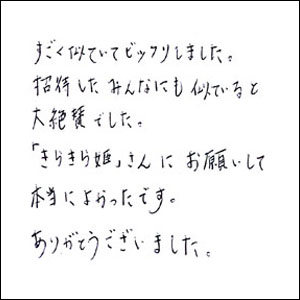 すごく似ていてビックリしました。
招待したみんなにも似ていると
大絶賛でした。
「きらきら姫」さんにお願いして
本当によかったです。
ありがとうございました。